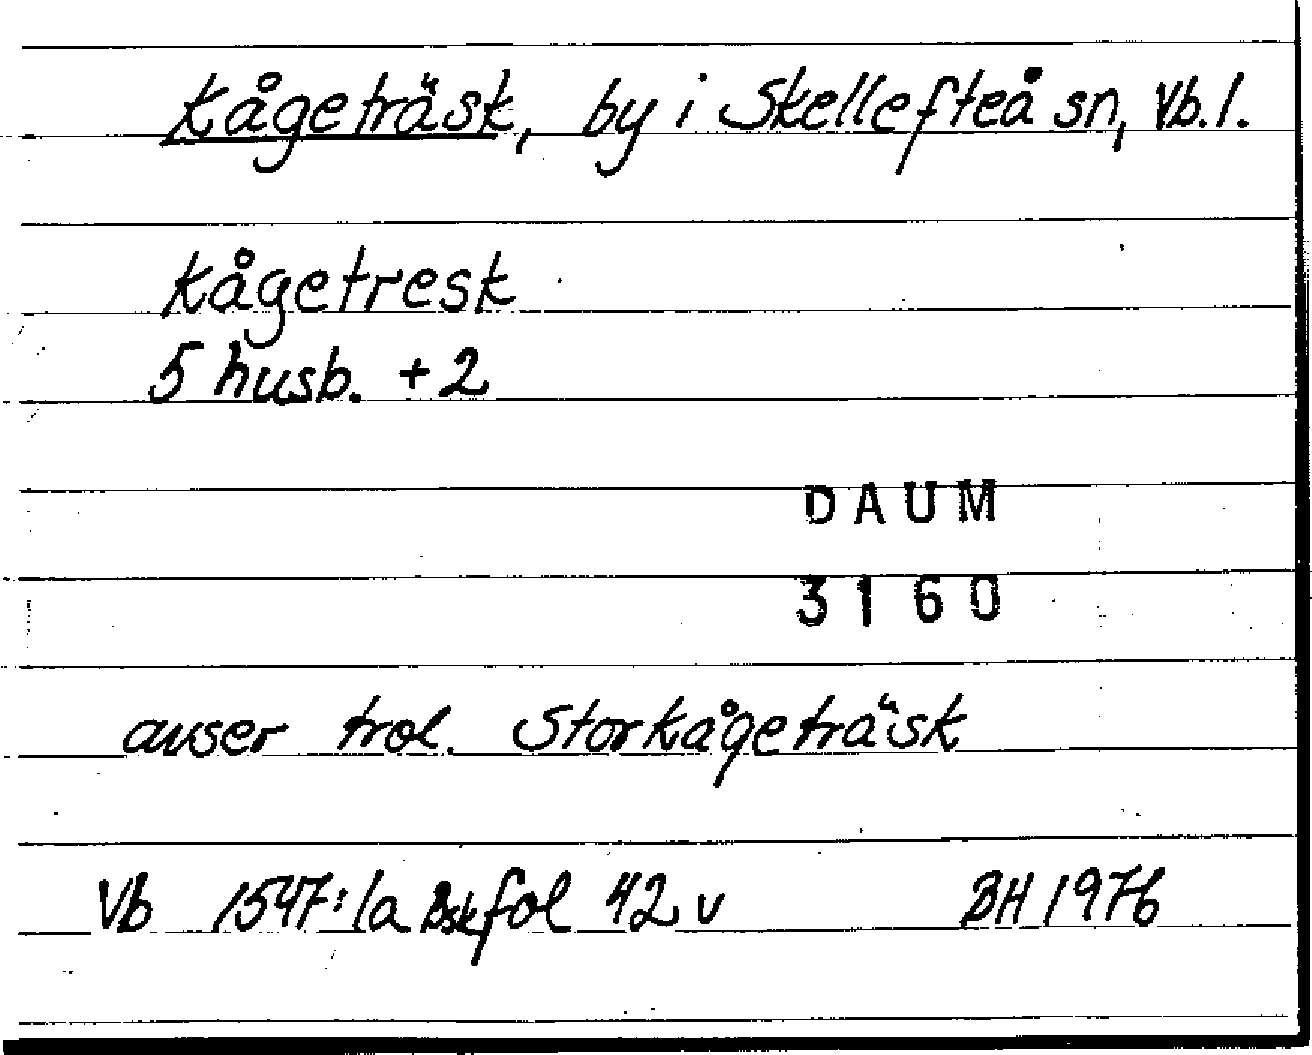 Kågeträsk, by i Skellefteå sn, Vb.l.
Kågetresk
5 husb. +2
DAUM
3160
avser trol. Storkågeträsk
Vb 1547:1a Bsk fol 42 v BH 1976